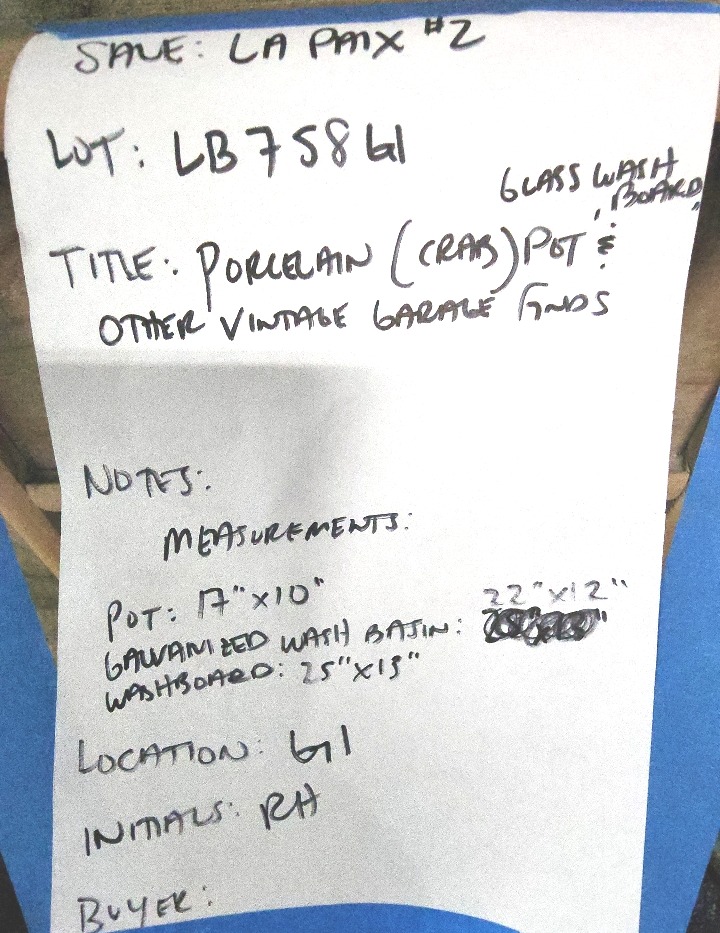 SALE: LA PAIX #2
LOT: LB7586I
GLASS WASH
BOARD,
TITLE: PORCELAIN (CRAB) POT &
OTHER VINTAGE GARAGE FINDS
NOTES:
MEASUREMENTS:
POT: 17"X10"
22"X12"
GALVANIZED WASH BASIN:
WASHBOARD: 25"X13"
LOCATION: G1
INITIALS: RH
BUYER: